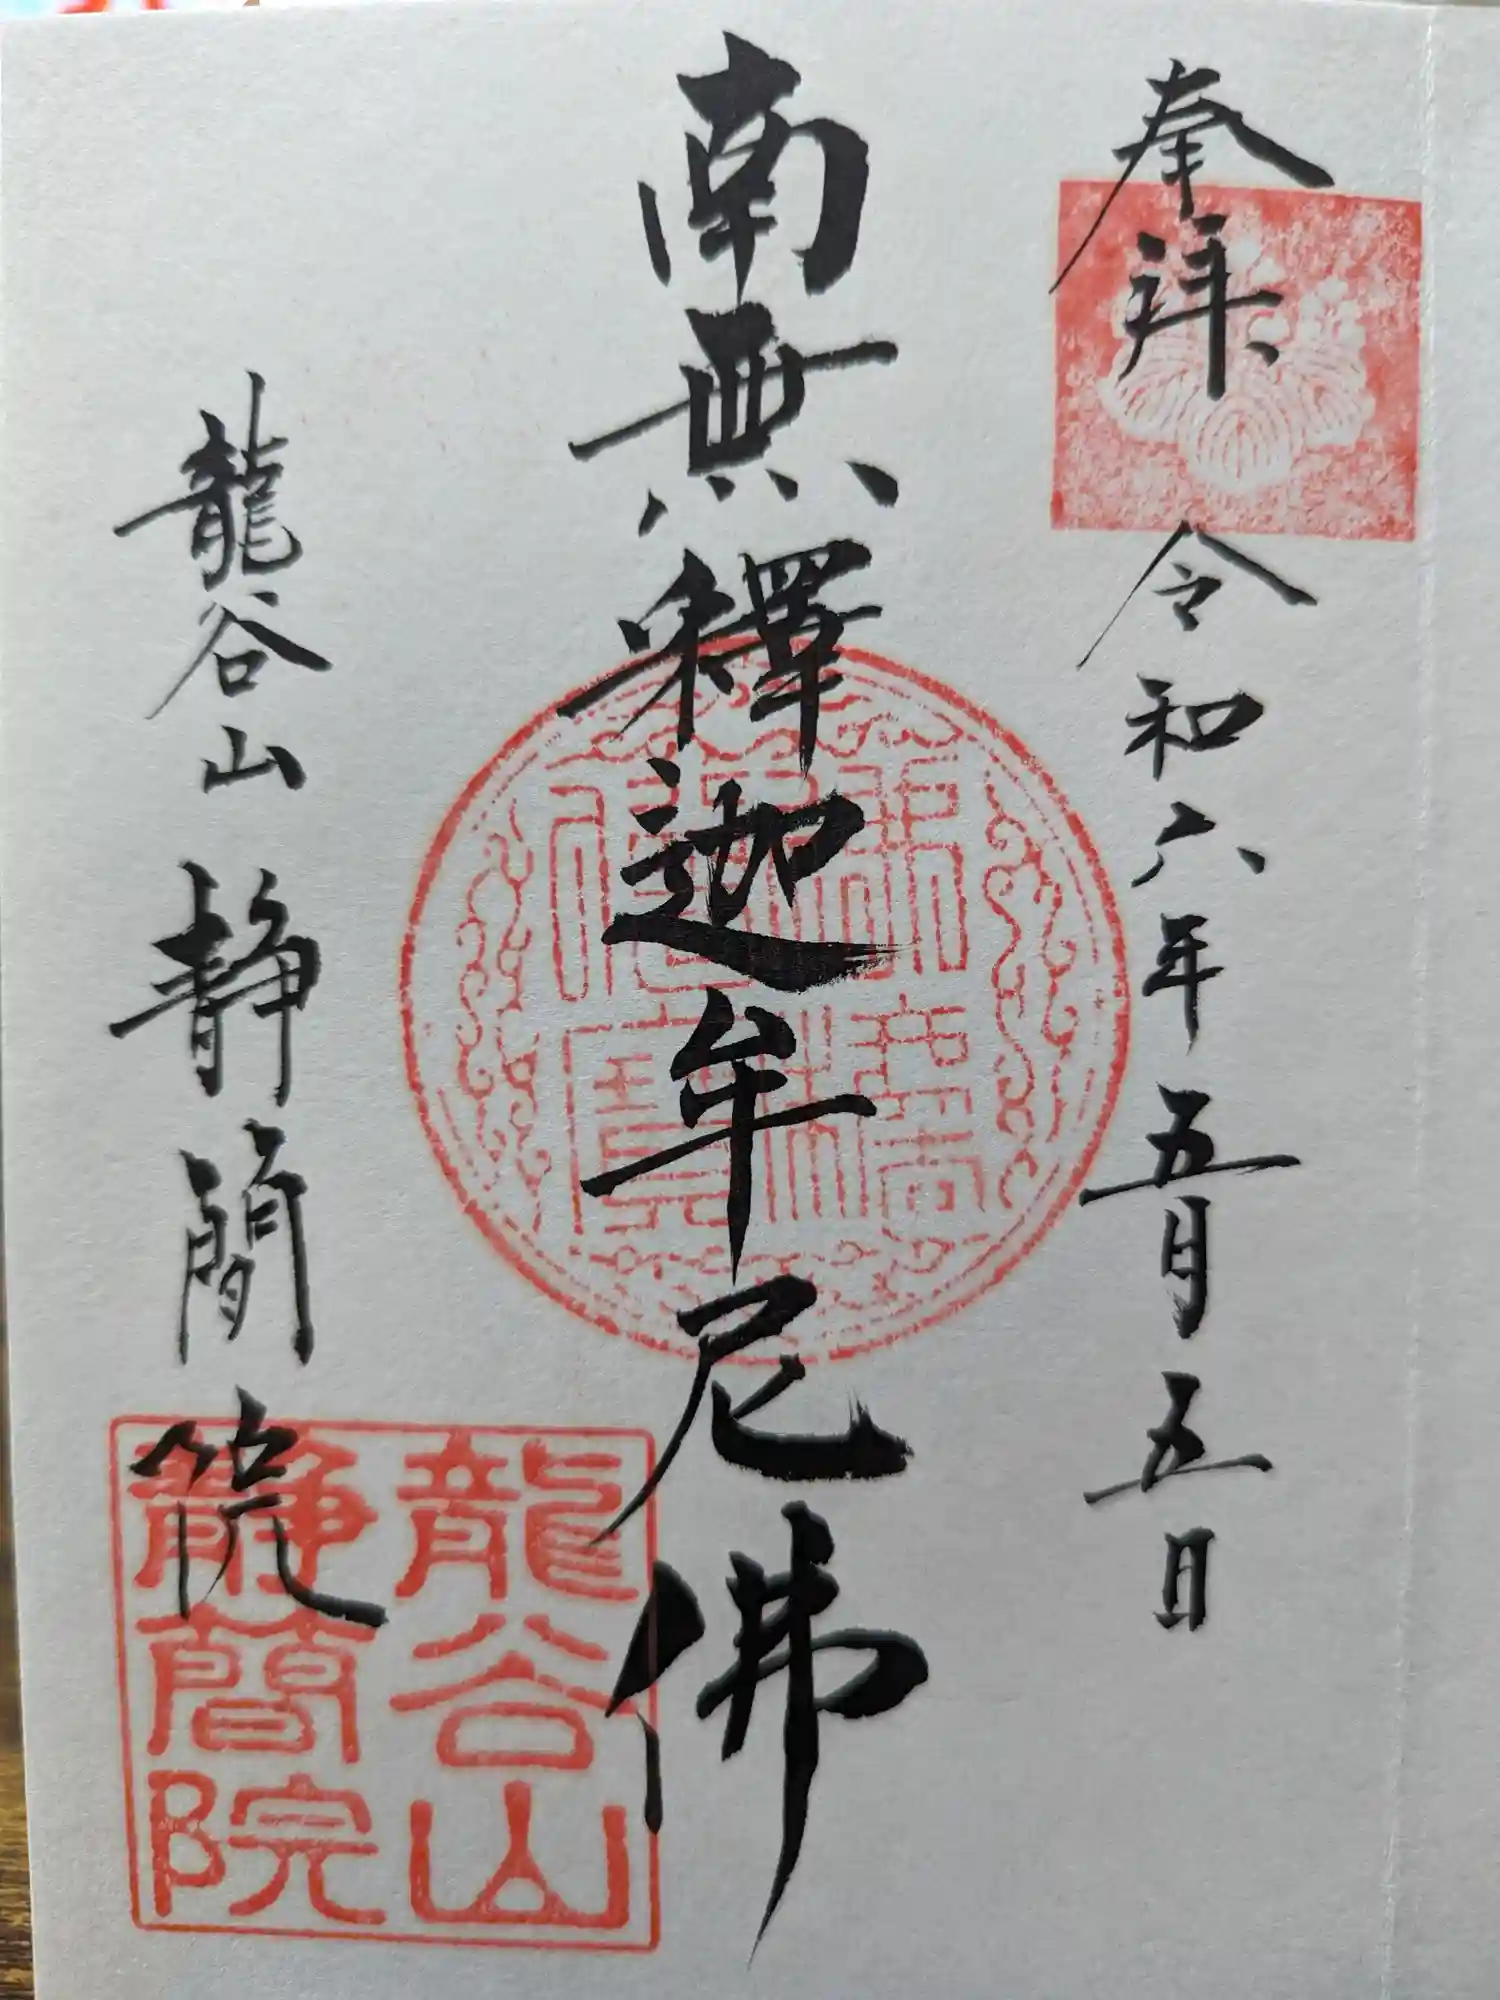 奉拝 令和六年五月五日
南無釋迦牟尼佛
龍谷山 静簡院
龍谷山
静簡院